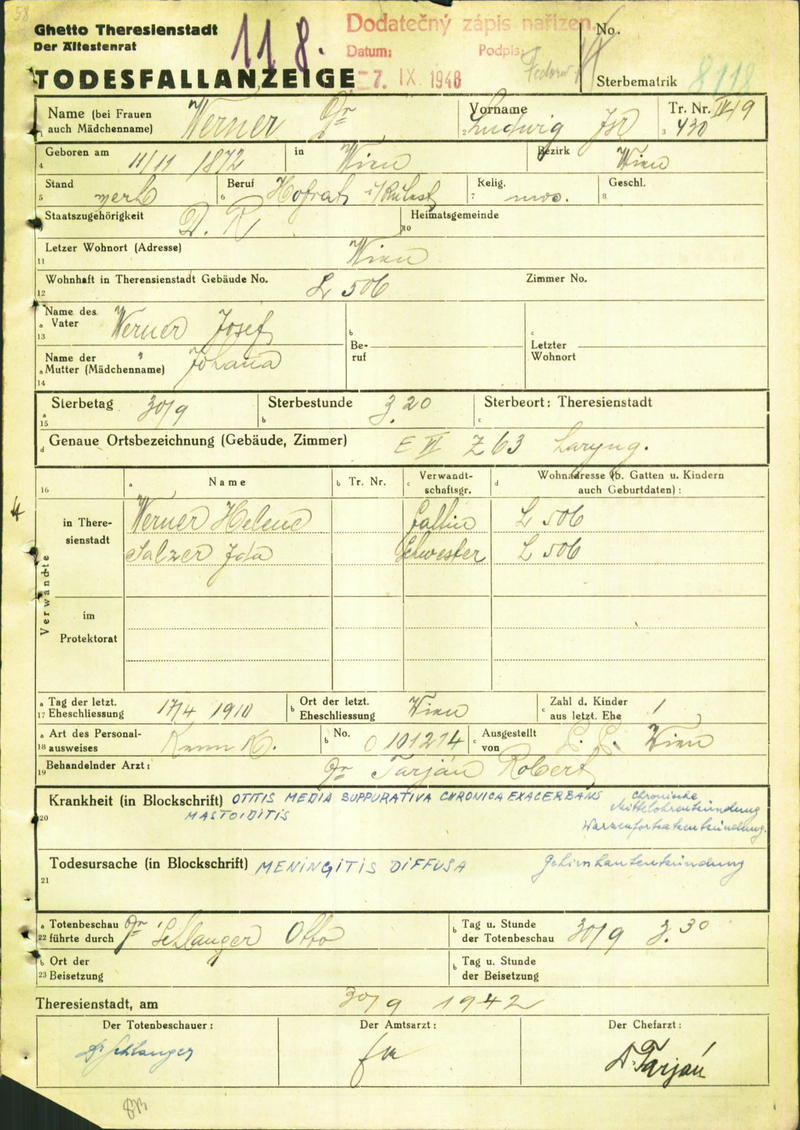 58
Ghetto Theresienstadt
Der Ältestenrat
TODESFALLANZEIGE
118.
Dodatečný zápis nařízen.
Datum: Podpis:
7. IX. 1948
No.
Sterbematrik 8118
Name (bei Frauen auch Mädchenname) Werner Dr
Vorname Ludwig Isr
Tr. Nr. IV/9
3 430
Geboren am 11/11 1872 in Wien Bezirk Wien
4
Stand verh Beruf Hofrat i/Ruhest Relig. mos. Geschl.
5 6 7 8
Staatszugehörigkeit D. R. Heimatsgemeinde
10
Letzer Wohnort (Adresse) Wien
11
Wohnhaft in Theresienstadt Gebäude No. L 506 Zimmer No.
12
Name des
a Vater Werner Josef
13
b Beruf
c Letzter Wohnort
Name der "
a Mutter (Mädchenname) Johana
14
Sterbetag 30/9 Sterbestunde 3.20 Sterbeort: Theresienstadt
a 15 b c
d Genaue Ortsbezeichnung (Gebäude, Zimmer) E VI Z 63 Laryng.
16 a Name b Tr. Nr. c Verwandtschaftsgr. d Wohnadresse (b. Gatten u. Kindern auch Geburtdaten):
Verwandte
in Theresienstadt
Werner Helene Gattin L 506
Salzer Ida Schwester L 506
im Protektorat
a Tag der letzt.
17 Eheschliessung 17/4 1910
b Ort der letzt. Eheschliessung Wien
c Zahl d. Kinder aus letzt. Ehe 1
a Art des Personal-
18 ausweises Kenn K.
b No. 0101274
c Ausgestellt von Wien
Behandelnder Arzt: Dr Tarján Robert
19
Krankheit (in Blockschrift) OTITIS MEDIA SUPPURATIVA CHRONICA EXACERBANS Chronische
20 MASTOIDITIS Mittelohrentzündung
Warzenfortsatzentzündung.
Todesursache (in Blockschrift) MENINGITIS DIFFUSA Gehirnhautentzündung
21
a Totenbeschau
22 führte durch Dr Schlanger Otto
b Tag u. Stunde der Totenbeschau 30/9 3.30
b Ort der
23 Beisetzung
b Tag u. Stunde der Beisetzung
Theresienstadt, am 30/9 1942
Der Totenbeschauer: Der Amtsarzt: Der Chefarzt:
Dr Schlanger Dr. Tarján